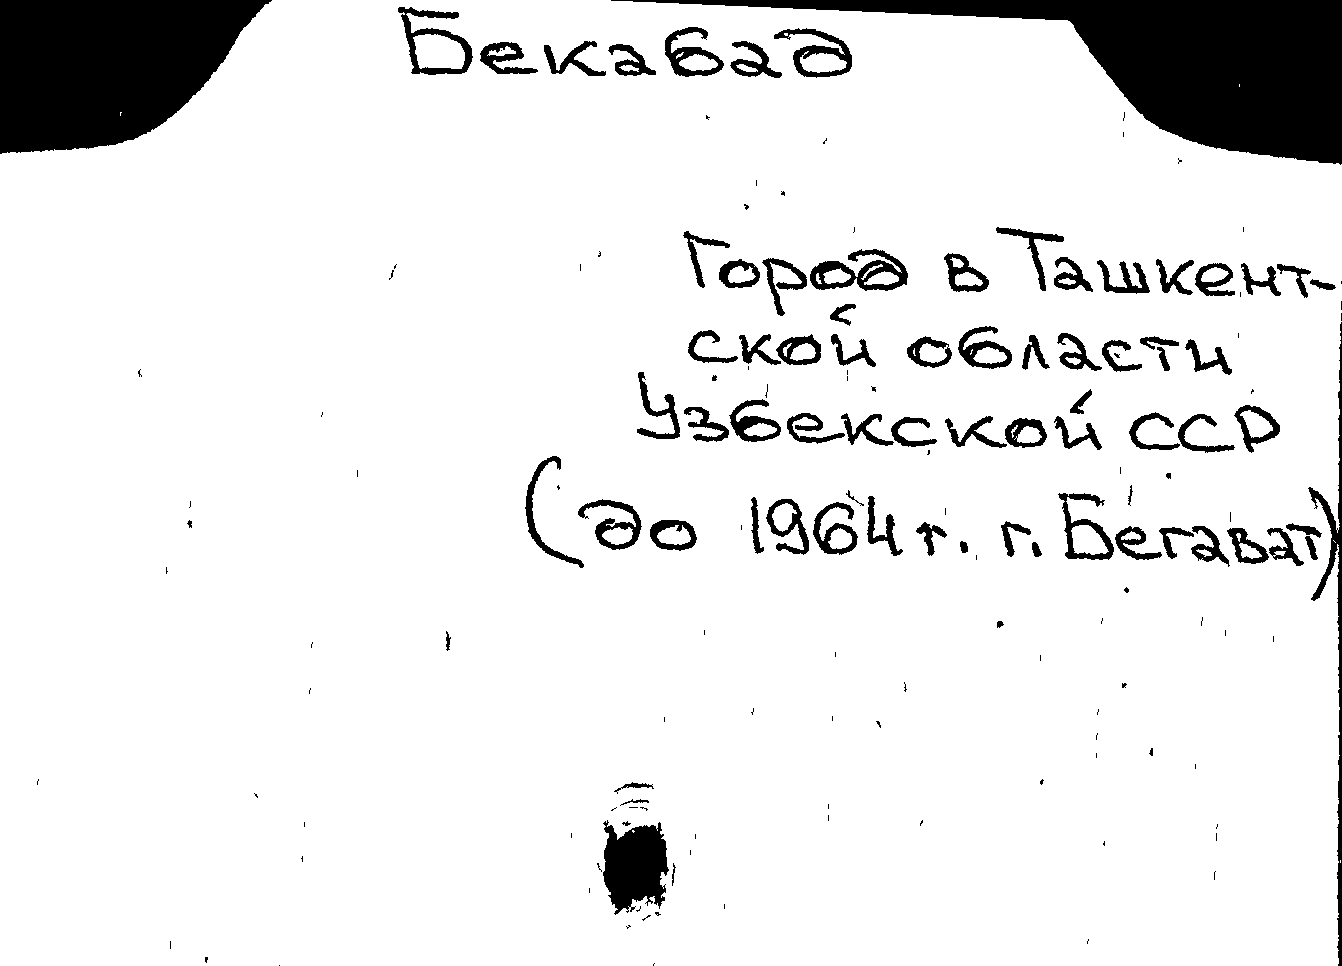 Бекабад
Город в Ташкент-
ской области
Узбекской ССР
(до 1964 г. г. Бегават)